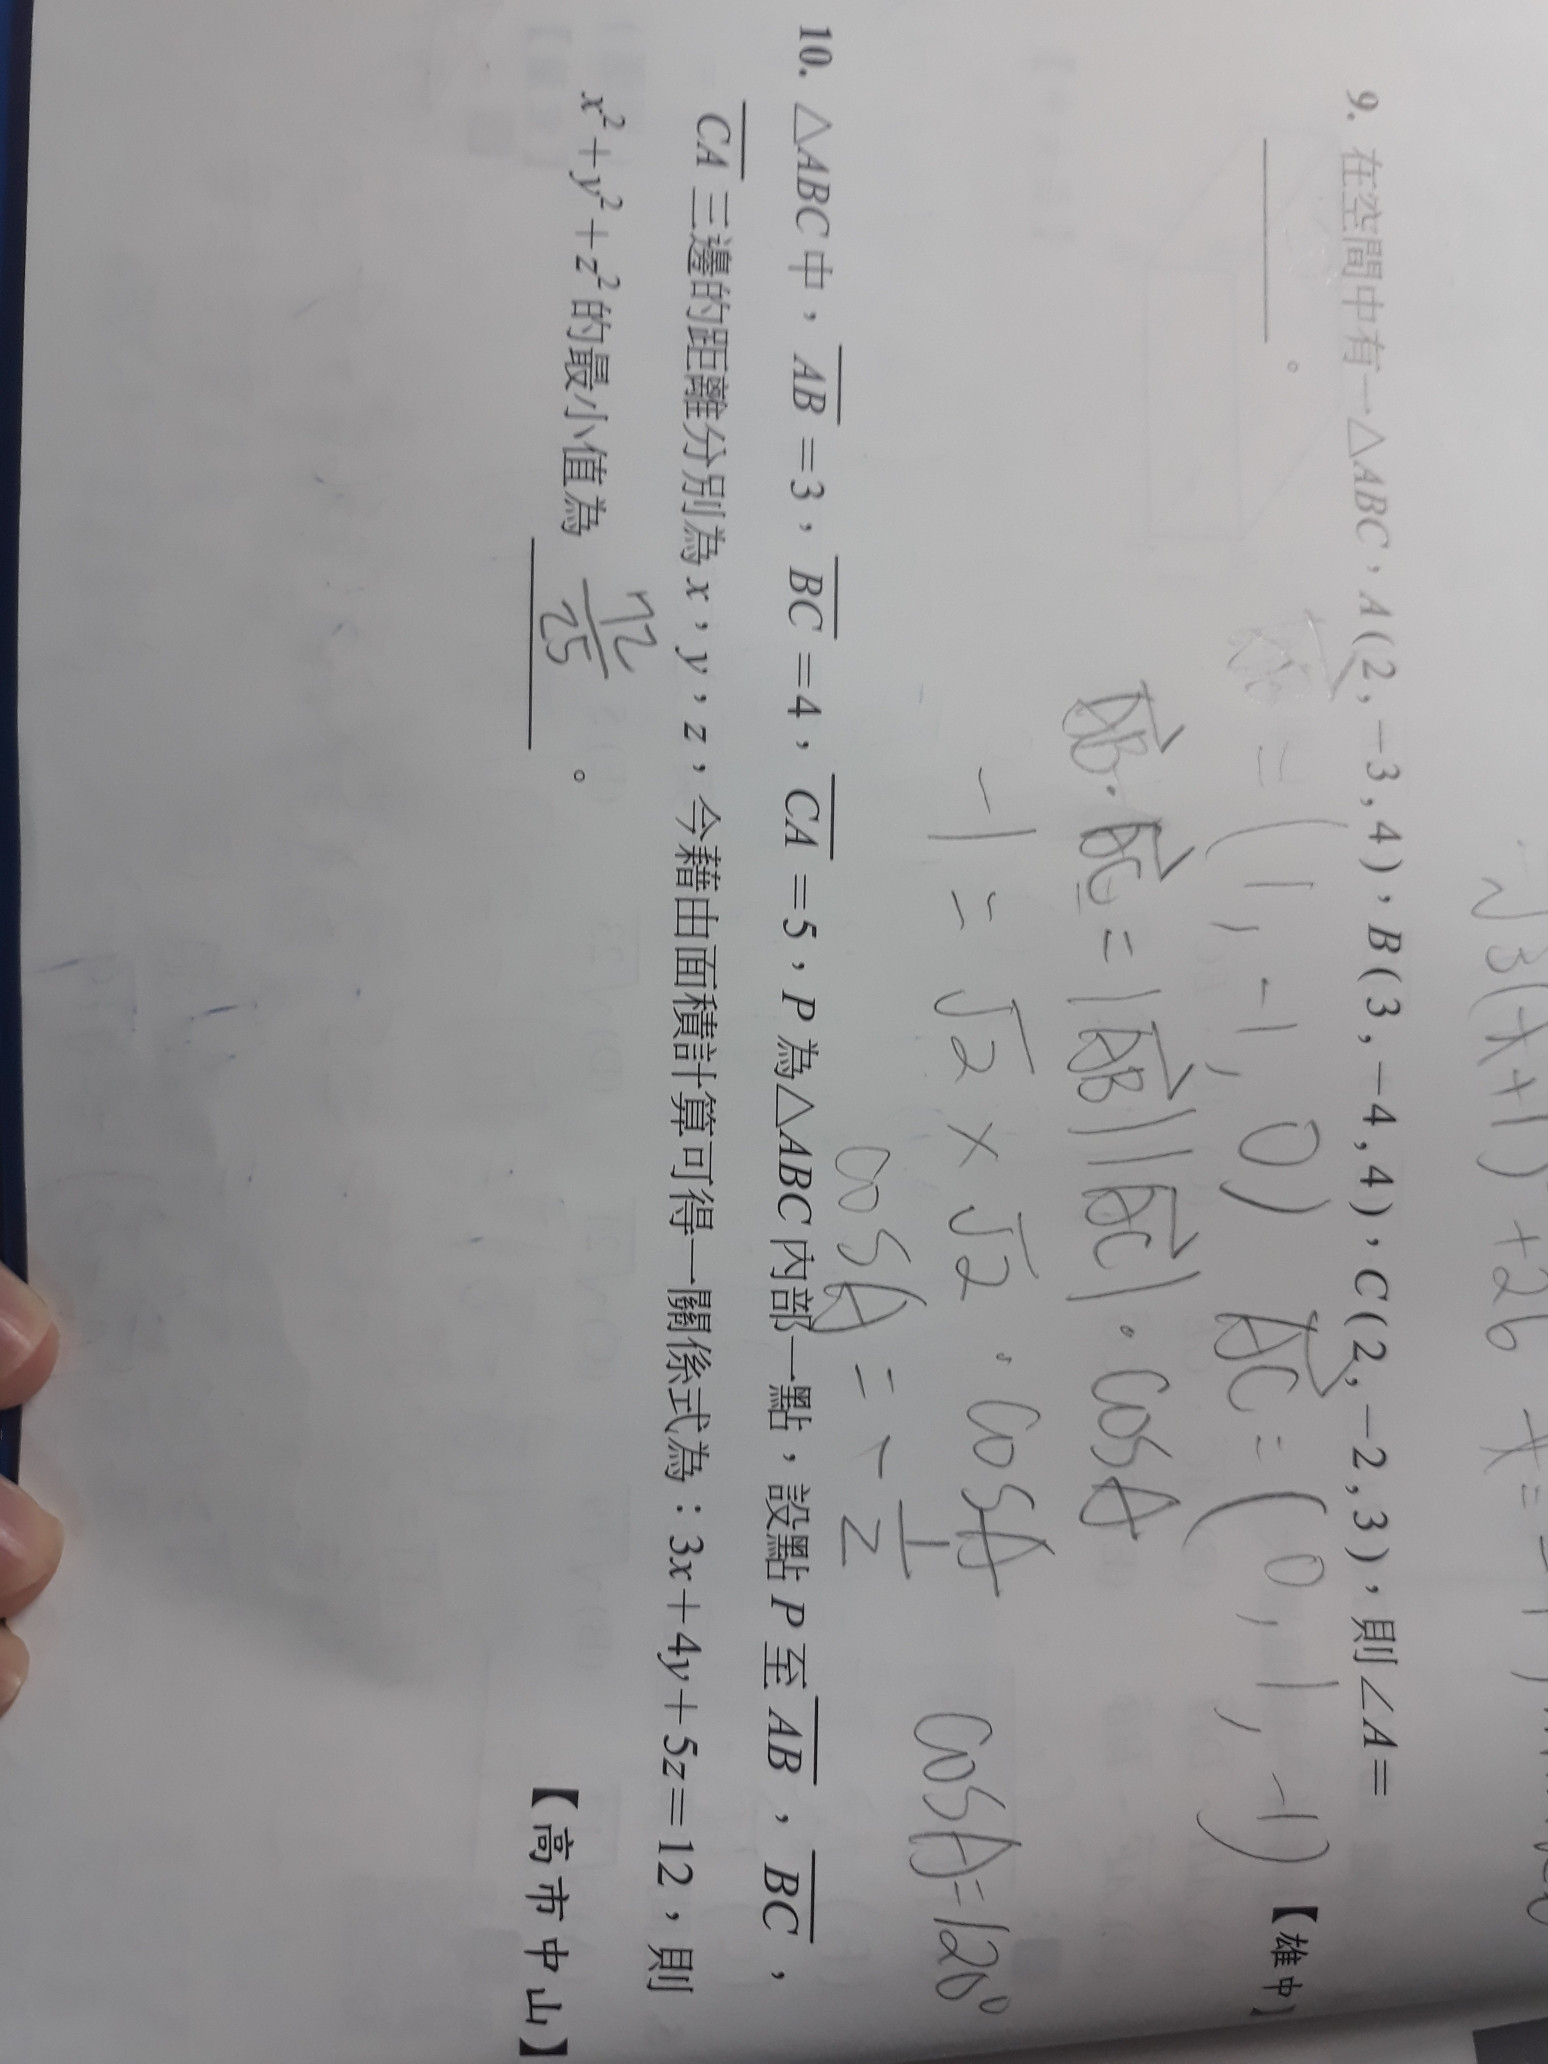 √3(x+1)+26
9. 在空間中有一△ABC，A(2,-3,4)、B(3,-4,4)、C(2,-2,3)，則∠A=
______。【雄中】
=(1,-1,0) AC=(0,1,-1)
AB·AC=|AB||AC|·cosA
-1=√2×√2·cosA cosA=120°
cosA=-1/2
10. △ABC中，AB=3，BC=4，CA=5，P為△ABC內部一點，設點P至AB，BC，
CA三邊的距離分別為x，y，z，今藉由面積計算可得一關係式為：3x+4y+5z=12，則
x²+y²+z²的最小值為 72/25 。【高市中山】